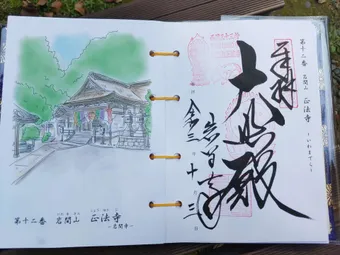 第十二番 岩間山 正法寺
-岩間寺-
第十二番 岩間山 正法寺
～いわまでら～
奉拝
大悲殿
岩間寺
令三 十 三